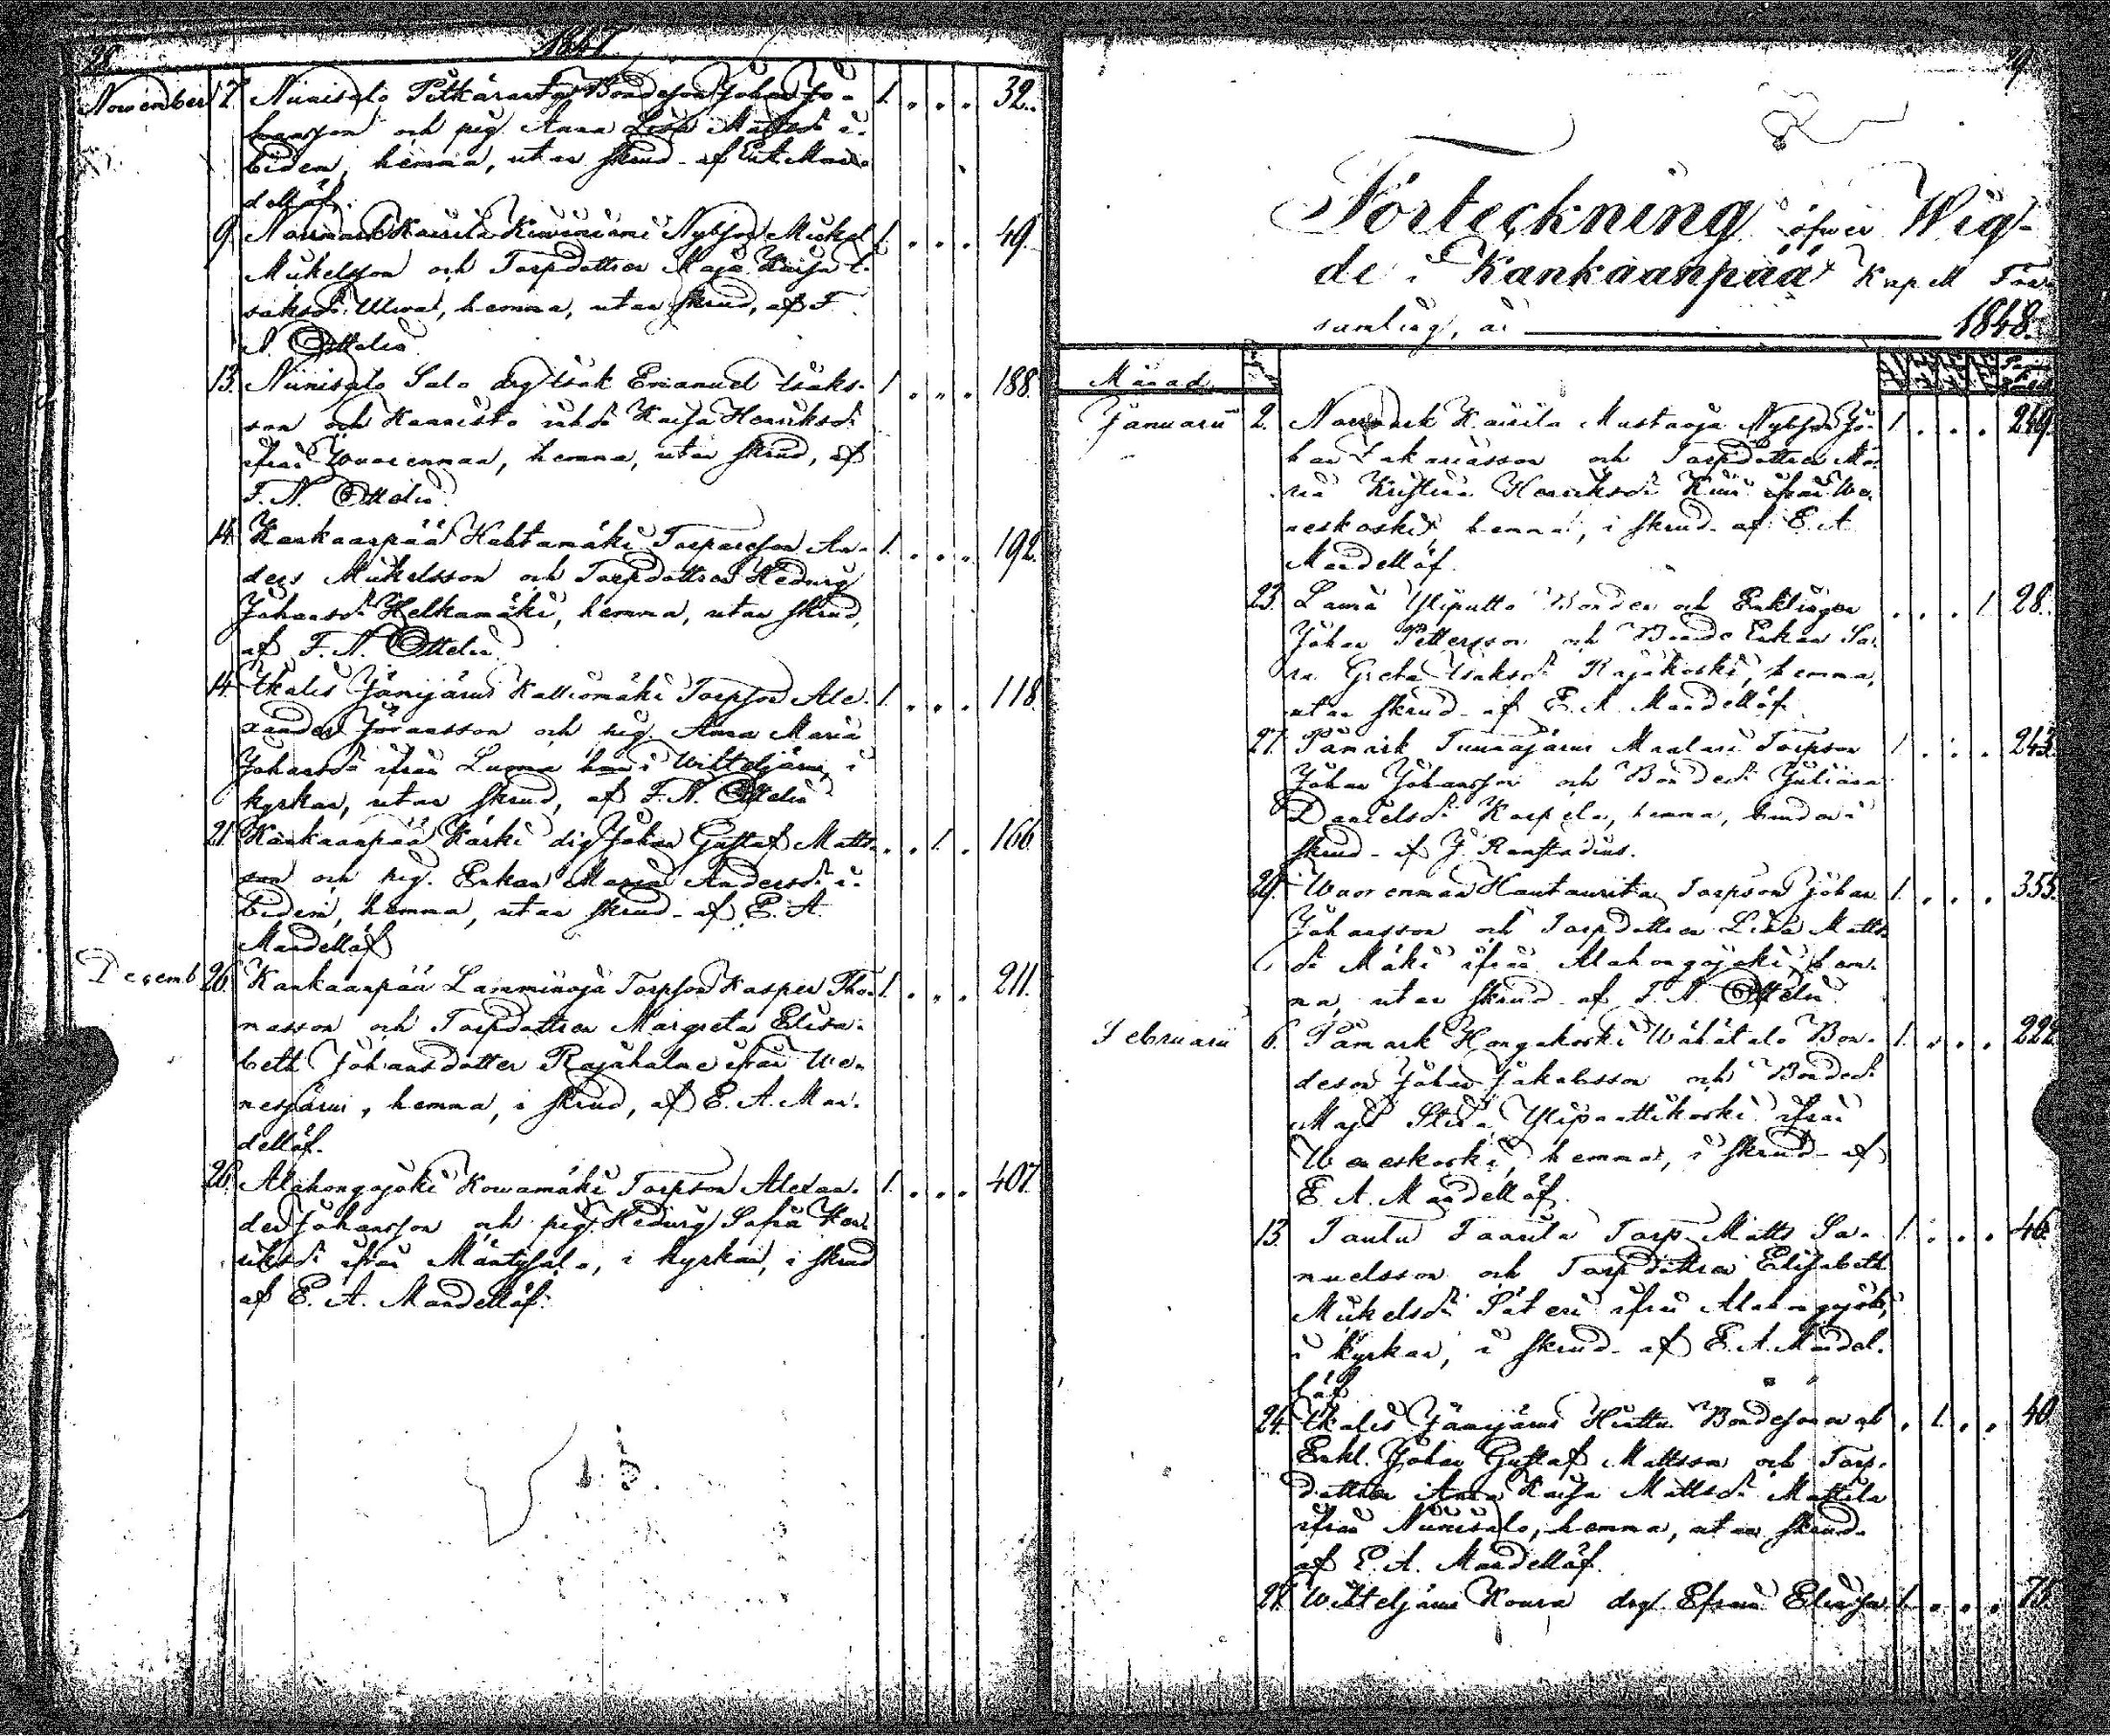 28.
1847.
November 7. Niinisalo Pitkäranta Bondeson Johan Jo- 1. 32.
hansson och pig. Anna Lisa Mattsd:r i-
bidem, hemma, utan skrud - af E. A. Man-
dellöf.
9. Norrmark Kairila Kiviniemi Nybson Mickel 1. 49.
Mickelsson och Torpdottren Maja Kaisa I-
saksd:r, hemma, utan skrud, af F.
N. Ottelin
13. Niinisalo Salo drg Isak Emanuel Isaks- 1 188.
son och Kannisto inhd:r Kaisa Henriksd:r
ifrån Wuorenmaa, hemma, utan skrud, af
F. N. Ottelin
14. Kankaanpää Hahtamäki Torpareson An- 1. 192.
ders Mickelsson och Torpdottren Hedvig
Johansd:r Helkamäki, hemma, utan skrud,
af F. N. Ottelin
14. Ikalis Jämijärvi Kalliomäki Torpson Ale- 1. 118.
xander Jöransson och pig. Anna Maria
Johansd:r ifrån Luoma i Wihteljärvi, i
kyrkan, utan skrud, af F. N. Ottelin
21. Kankaanpää Karki drg Johan Gustaf Matts- 1. 166.
son och pig. Enkan Maria Andersd:r i-
bidem, hemma, utan skrud - af E. A.
Mandellöf
Decemb. 26. Kankaanpää Lamminoja Torpson Kasper Tho- 1. 211.
masson och Torpdottren Margreta Elisa-
beth Johansdotter Rajahalme ifrån We-
nesjärvi, hemma, i skrud, af E. A. Man-
dellöf.
26. Alahongojoki Kowamäki Torpson Alexan- 1. 407.
der Johansson och pig. Hedvig Sofia Hen-
riksd:r ifrån Mäntysalo, i kyrkan, i skrud
af E. A. Mandellöf.
29.
Förteckning öfver Wig-
de i Kankaanpää Kapell För-
samling, år 1848.
Månad
Januarii 2. Norrmark Kairila Mustaoja Nybson Jo- 1. 249.
han Zakariasson och Torpdottren Ma-
ria Kristina Henriksd:r ifrån We-
neskoski, hemma, i skrud - af E. A.
Mandellöf.
23. Lauri Yliputto Bonden och Enklingen 1. 28.
Johan Pettersson och Bonde Enkan Sa-
ra Greta Isaksd:r Rajakoski, hemma,
utan skrud - af E. A. Mandellöf.
27. Påmark Tuurajärvi Maalari Torpson 1. 243.
Johan Johansson och Bonded:r Juliana
Danielsd:r Karpela, hemma,
skrud - af J. Ranstadius.
29. Wuorenmaa Hautaurita Torpson Johan 1. 355.
Johansson och Torpdottren Lisa Matts-
d:r Mäki ifrån Alahongojoki, hem-
ma, utan skrud - af F. N. Ottelin
Februarii 6. Påmark Hongakoski Wähätalo Bon- 1. 222.
deson Johan Jakobsson och Bonded:r
Maja Stina Ylipaattikoski ifrån
Weneskoski, hemma, i skrud - af
E. A. Mandellöf.
13. Taulu Taarila Torp. Matts Sa- 1. 46.
muelsson och Torpdottren Elisabeth
Mickelsd:r Säteri ifrån Alahongojoki,
i kyrkan, i skrud - af E. A. Mandel-
löf
24. Ikalis Jämijärvi Hiettu Bondesonen och 1. 40.
Enkl. Johan Gustaf Mattsson och Torp-
dottren Anna Kaisa Mattsd:r Mattila
ifrån Niinisalo, hemma, utan skrud -
af E. A. Mandellöf.
27. Wihteljärvi Koura drg. Efraim Eliasson 1. 75.